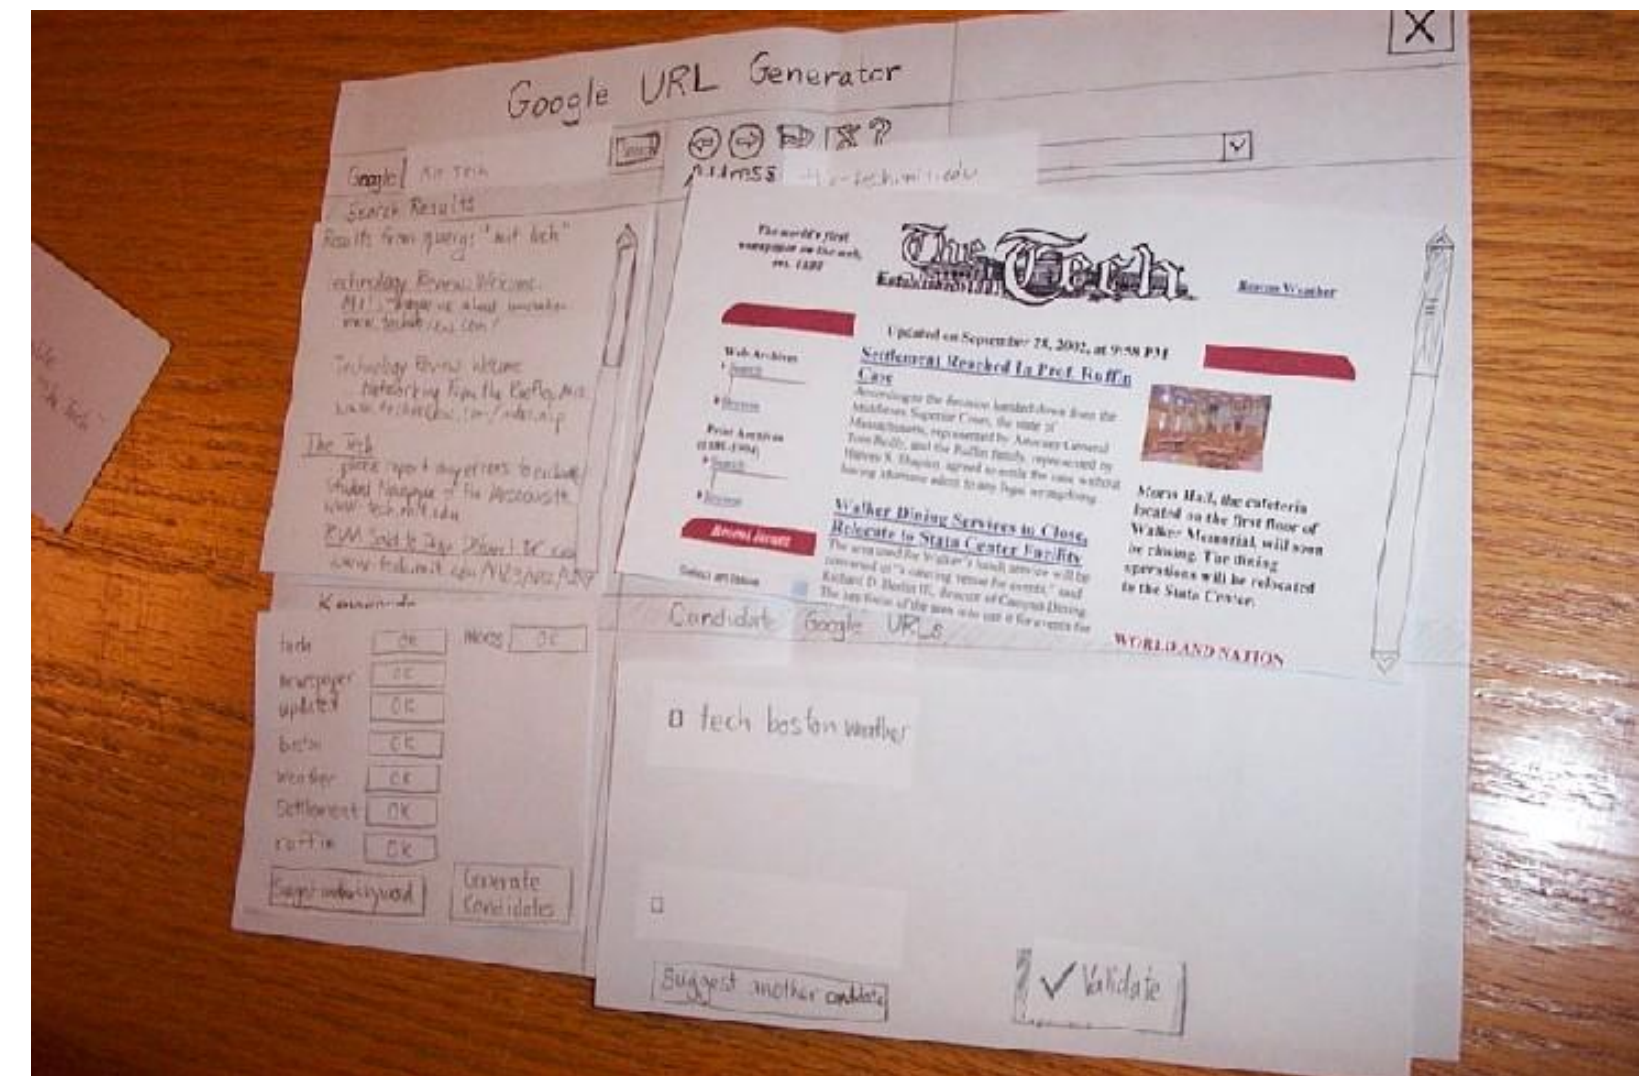 Google URL Generator
X
Search
?
Google
mit tech
Address
tech.mit.edu
Search Results
Results from query: "mit tech"
Technology Review: Welcome
MIT's about innovation
Technology Review: Welcome
Networking From the Rooftop
The Tech
please report any errors to
Student Newspaper of the
www-tech.mit.edu
The world's first
newspaper on the web,
The Tech
Boston Weather
Updated on September 28, 2002, at 9:58 PM
Web Archives
Search
Browse
Print Archives
Search
Browse
Recent Issues
Select an issue
Settlement Reached In Prof. Ruffin
Case
According to the decision handed down from the
Middlesex Superior Court, the state of
Massachusetts, represented by Attorney General
Tom Reilly, and the Ruffin family, represented by
agreed to settle the case without
Walker Dining Services to Close,
Relocate to Stata Center Facility
The area used for Walker's lunch service will be
converted to "a catering venue for events," said
Richard D. Berlin III, director of Campus Dining.
Morss Hall, the cafeteria
located on the first floor of
Walker Memorial, will soon
be closing. The dining
operations will be relocated
to the Stata Center.
WORLD AND NATION
Keywords
tech OK
morss OK
newspaper OK
updated OK
boston OK
weather OK
Settlement OK
ruffin OK
Suggest another keyword
Generate
Candidates
Candidate Google URLs
tech boston weather
Suggest another candidate
Validate